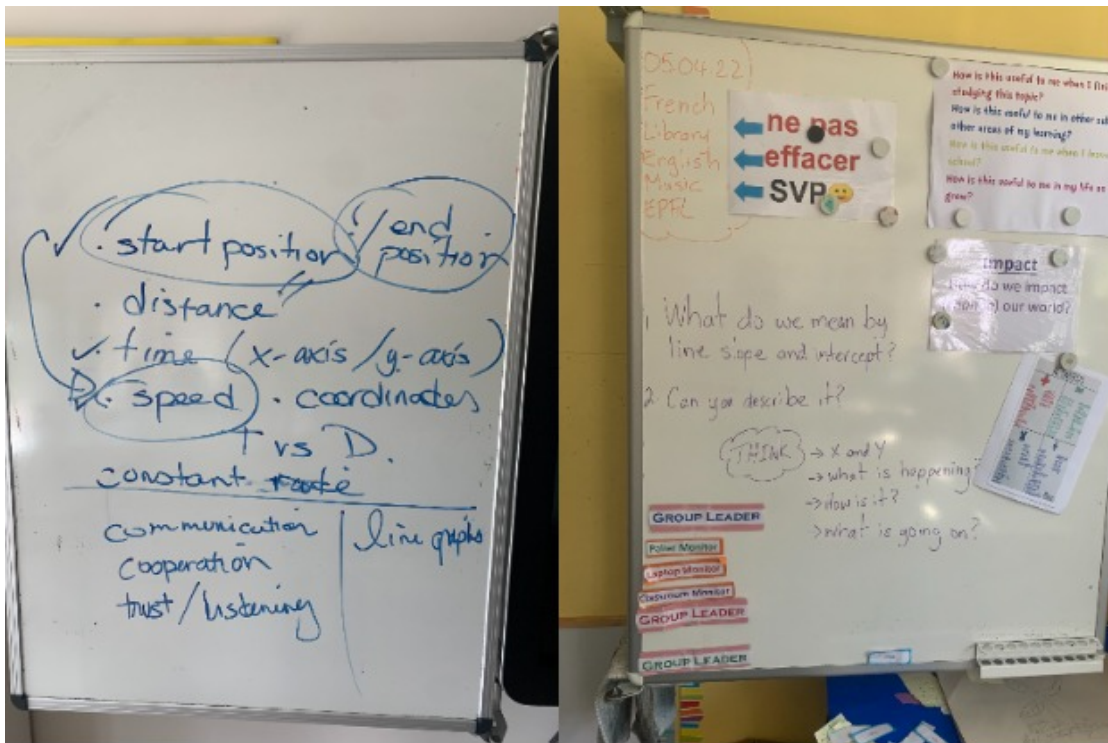 · start position / end
position
· distance
time (x-axis / y-axis)
· speed · coordinates
T vs D.
constant rate
communication
cooperation
trust / listening
line graphs
05.04.22
French
Library
English
Music
EPFL
ne pas
effacer
SVP
How is this useful to me when I
studying this topic?
How is this useful to me in other
other areas of my learning?
How is this useful to me when I
school?
How is this useful to me in my life as
grow?
Impact
do we impact
our world?
1. What do we mean by
line slope and intercept?
2. Can you describe it?
THINK → X and Y
→ what is happening?
→ How is it?
→ What is going on?
GROUP LEADER
Monitor
Laptop Monitor
Classroom Monitor
GROUP LEADER
GROUP LEADER